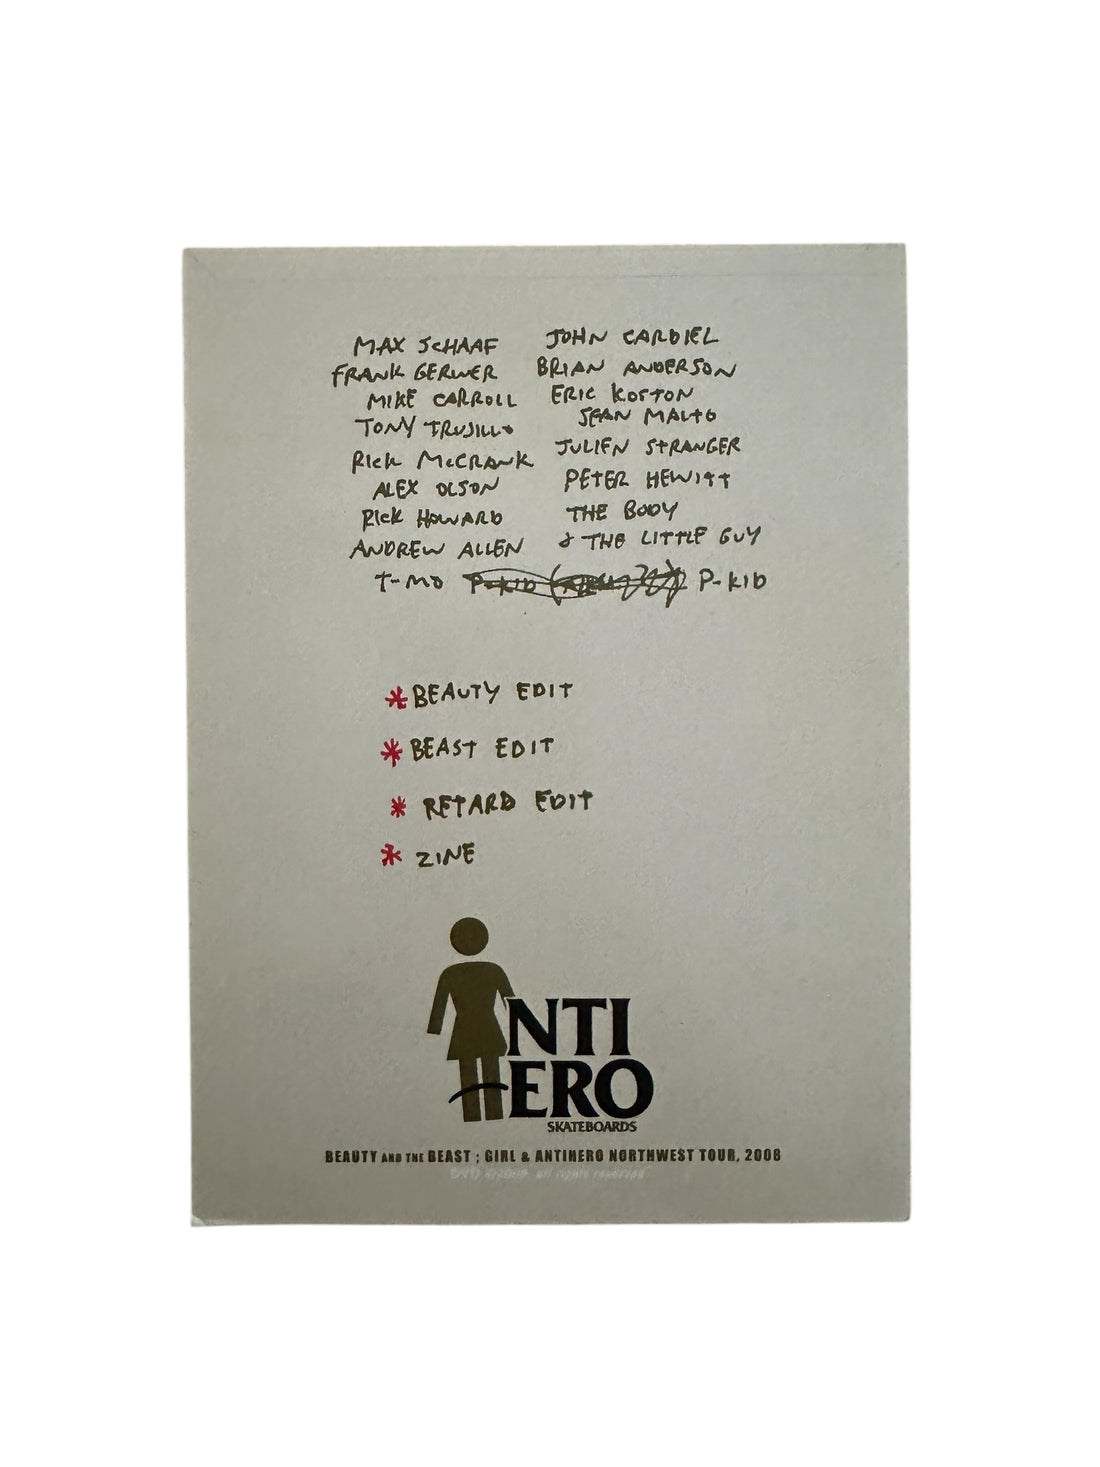 MAX SCHAAF JOHN CARDIEL
FRANK GERWER BRIAN ANDERSON
MIKE CARROLL ERIC KOSTON
TONY TRUJILLO SEAN MALTO
RICK McCRANK JULIEN STRANGER
ALEX OLSON PETER HEWITT
RICK HOWARD THE BODY
ANDREW ALLEN & THE LITTLE GUY
T-MO P-KID P-KID
* BEAUTY EDIT
* BEAST EDIT
* RETARD EDIT
* ZINE
NTI
ERO
SKATEBOARDS
BEAUTY AND THE BEAST ; GIRL & ANTIHERO NORTHWEST TOUR, 2008
all rights reserved